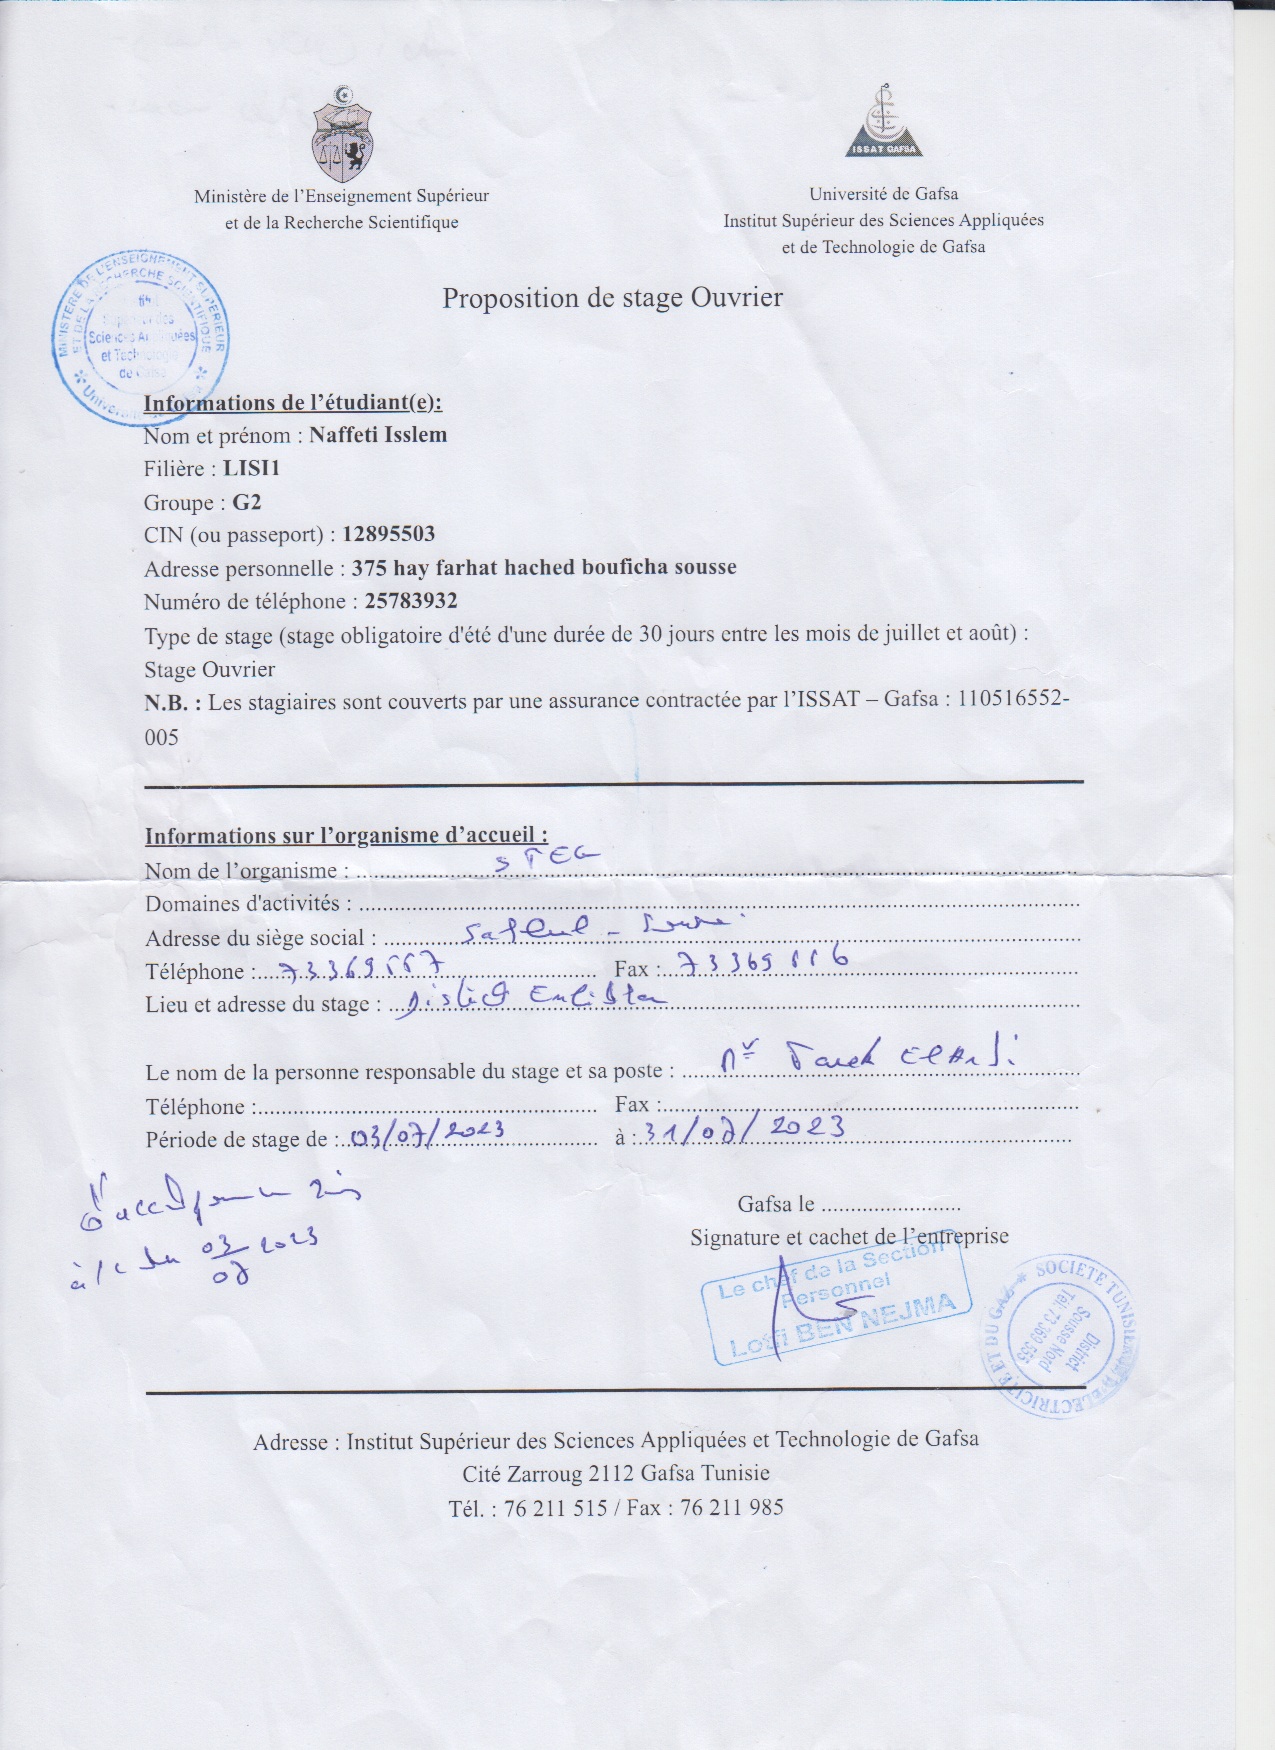 ISSAT GAFSA
Ministère de l'Enseignement Supérieur
et de la Recherche Scientifique
Université de Gafsa
Institut Supérieur des Sciences Appliquées
et de Technologie de Gafsa
MINISTERE DE L'ENSEIGNEMENT SUPERIEUR
ET DE LA RECHERCHE SCIENTIFIQUE
Sciences Appliquées
et Technologie
de Gafsa
Proposition de stage Ouvrier
Informations de l'étudiant(e):
Nom et prénom : Naffeti Isslem
Filière : LISI1
Groupe : G2
CIN (ou passeport) : 12895503
Adresse personnelle : 375 hay farhat hached bouficha sousse
Numéro de téléphone : 25783932
Type de stage (stage obligatoire d'été d'une durée de 30 jours entre les mois de juillet et août) :
Stage Ouvrier
N.B. : Les stagiaires sont couverts par une assurance contractée par l'ISSAT – Gafsa : 110516552-
005
Informations sur l'organisme d'accueil :
Nom de l'organisme : STEG
Domaines d'activités :
Adresse du siège social :
Téléphone : Fax :
Lieu et adresse du stage : District
Le nom de la personne responsable du stage et sa poste : Mr Tarek
Téléphone : Fax :
Période de stage de : 03/07/2023 à : 31/07/2023
03/07 2023
Gafsa le
Signature et cachet de l'entreprise
Le chef de la Section
Personnel
Lotfi BEN NEJMA
SOCIETE TUNISIENNE D'ELECTRICITE ET DU GAZ
District
Sousse Nord
Tél: 73 369 555
Adresse : Institut Supérieur des Sciences Appliquées et Technologie de Gafsa
Cité Zarroug 2112 Gafsa Tunisie
Tél. : 76 211 515 / Fax : 76 211 985